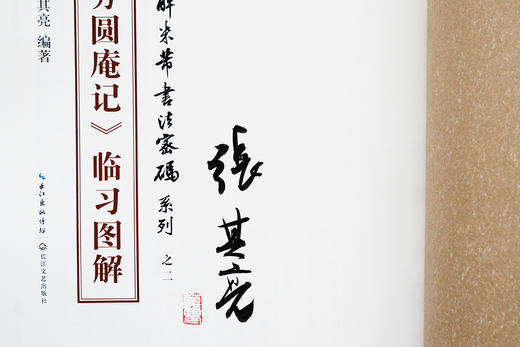 其亮 编著
方圆庵记》临习图解
长江出版传媒
长江文艺出版社
解米芾書法密碼系列 之二
張其亮